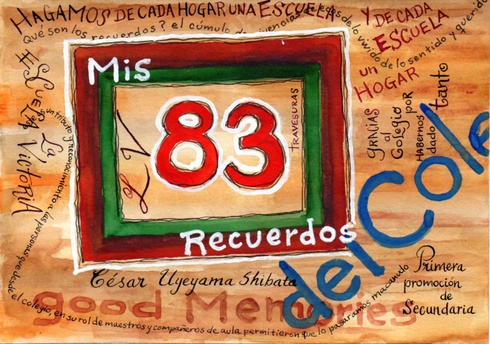 HAGAMOS DE CADA HOGAR UNA ESCUELA
Y DE CADA
ESCUELA
un
HOGAR
Qué son los recuerdos? el cúmulo de vivencias de lo vivido de lo sentido y querido
Mis
83
Recuerdos
del Cole
TRAVESURAS
ESCUELA
La
VICTORIA
un tributo y reconocimiento a las personas que desde el colegio, en su rol de maestros y compañeros de aula permitieron que lo pasaramos macanudo
GRACIAS
al
Colegio
POR
HABERNOS
dado
tanto
César Uyeyama Shibata
good Memories
Primera
promoción
de
Secundaria